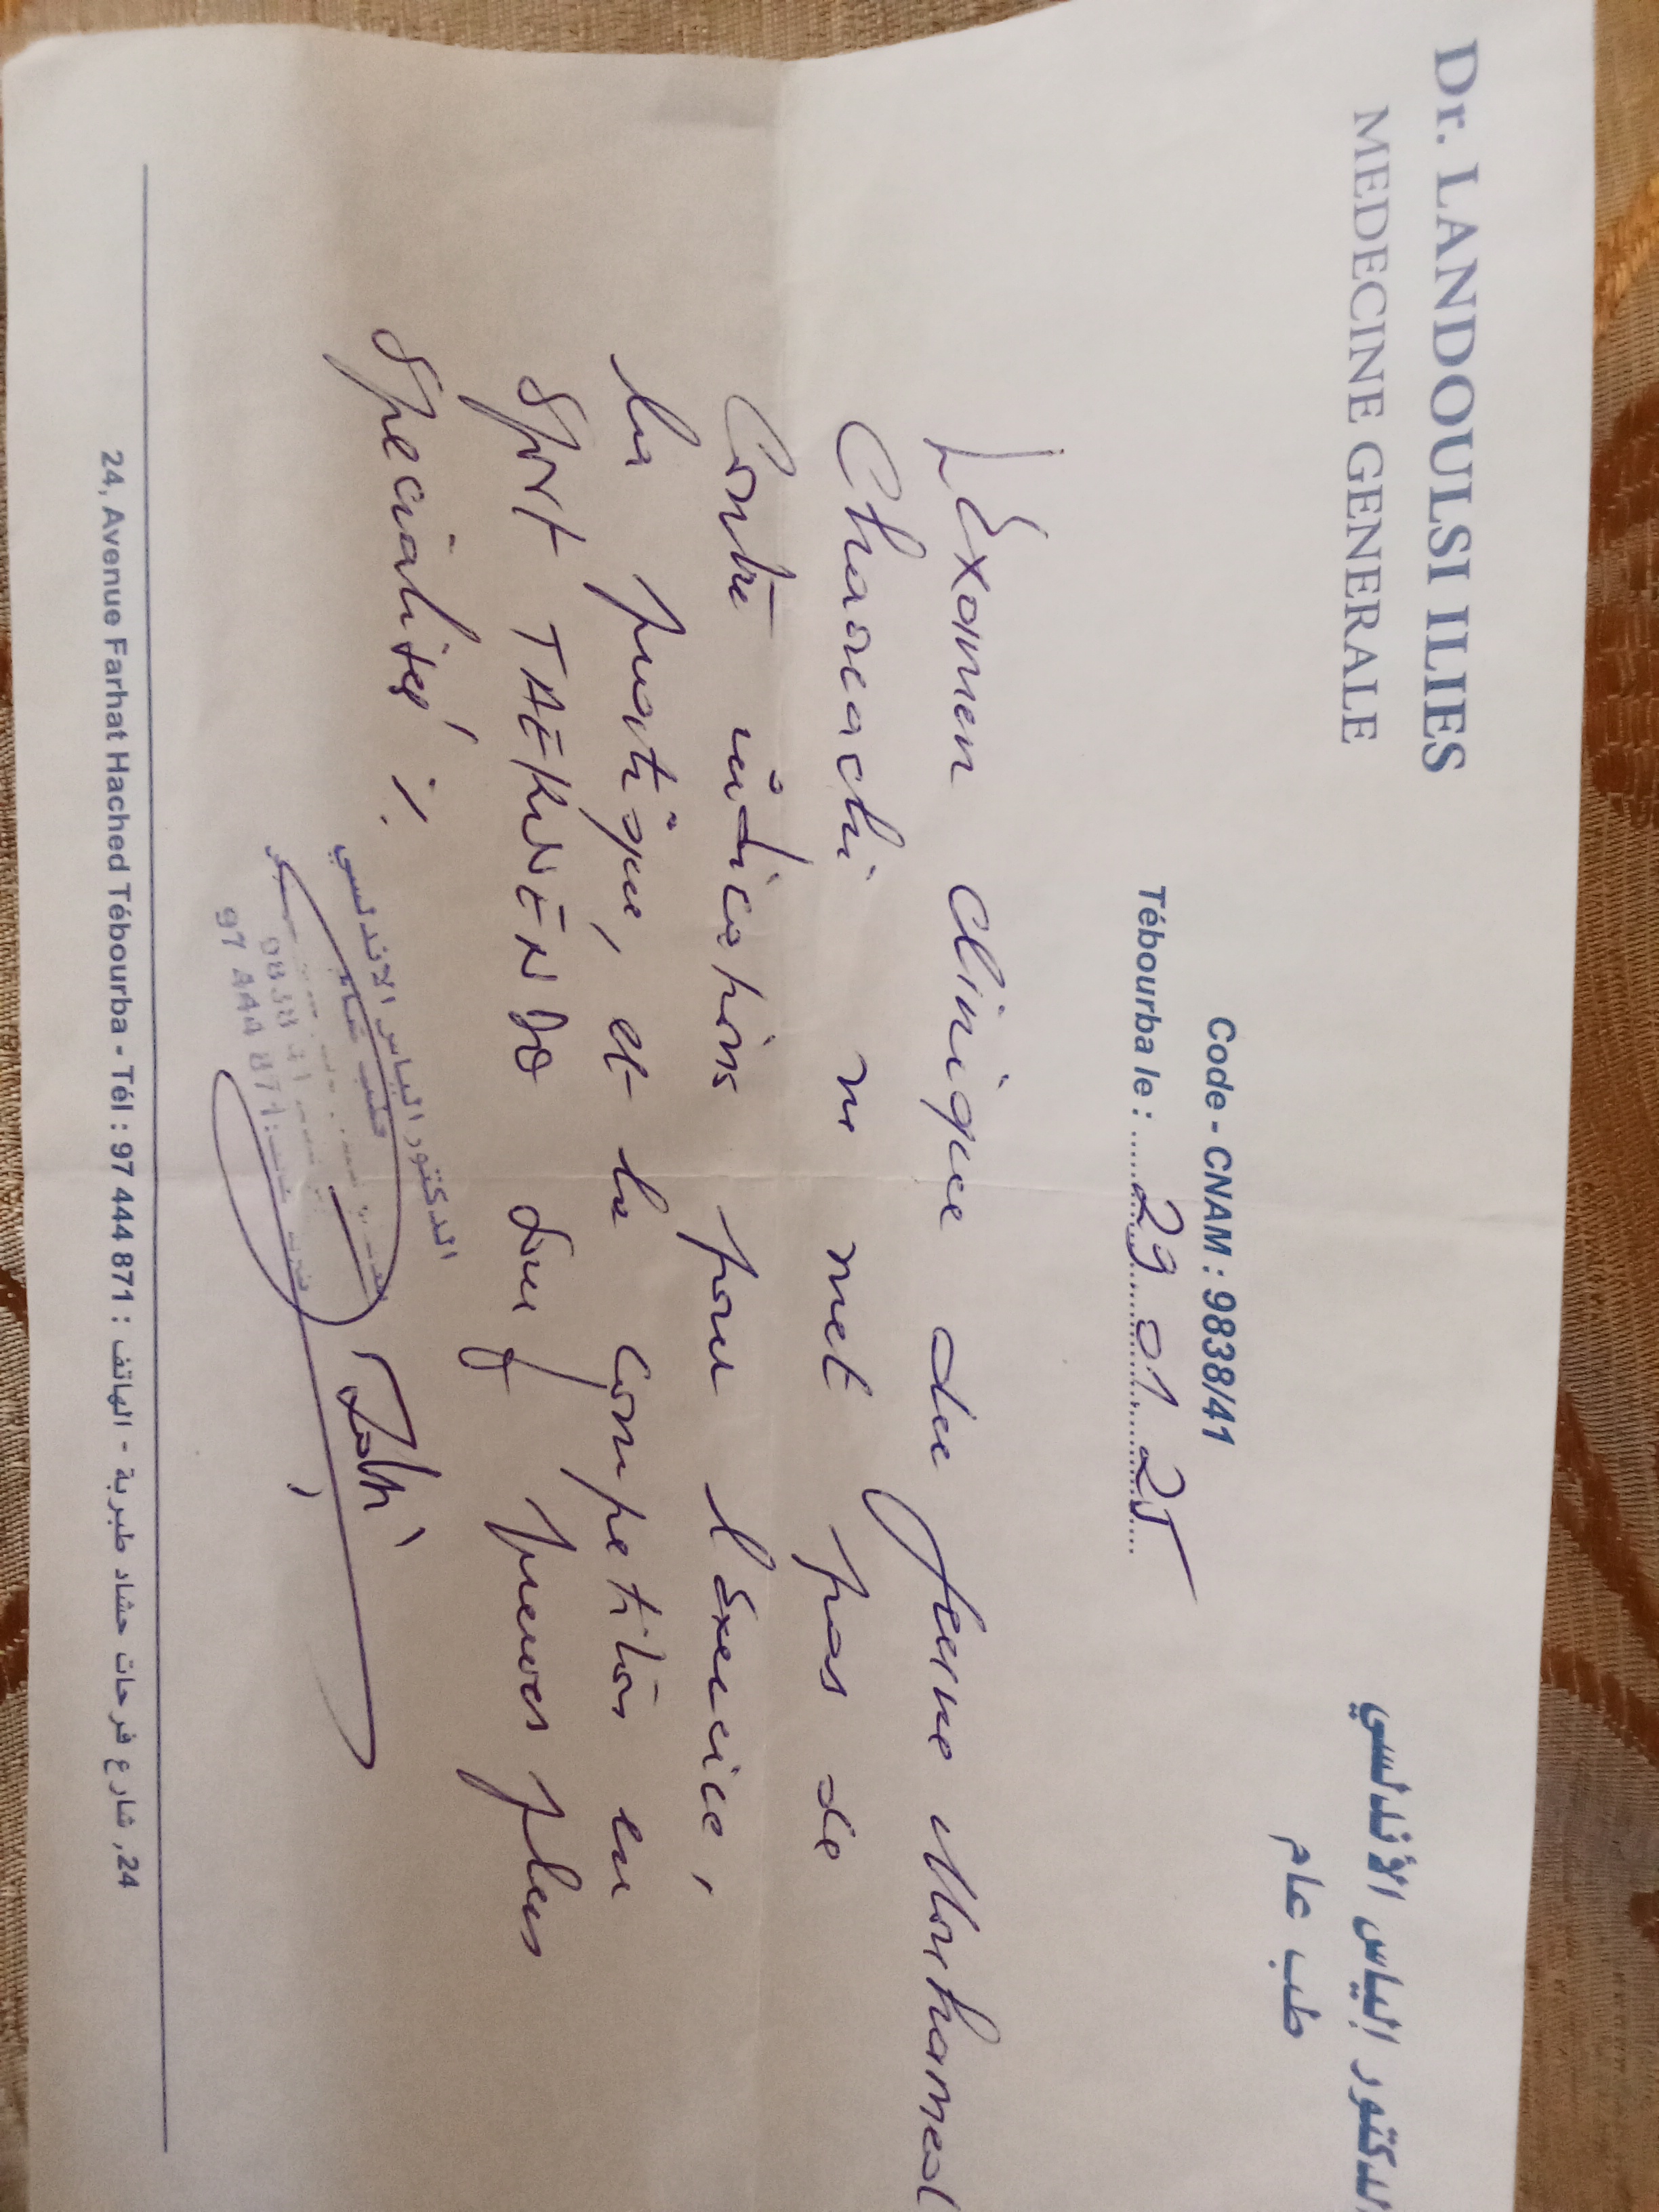 Dr. LANDOULSI ILIES
MEDECINE GENERALE
الدكتور الياس الأندلسي
طب عام
Code - CNAM : 9838/41
Tébourba le : 29 01 25
L'Examen Clinique du jeune Mohamed
ne met pas de
Contre indications pour l'Exercice,
la pratique, et la competition en
Sport TAEKWENDO
Specialités ./.
الدكتور الياس الاندلسي
97 444 871
24, Avenue Farhat Hached Tébourba - Tél : 97 444 871 : الهاتف - 24, شارع فرحات حشاد طبربة